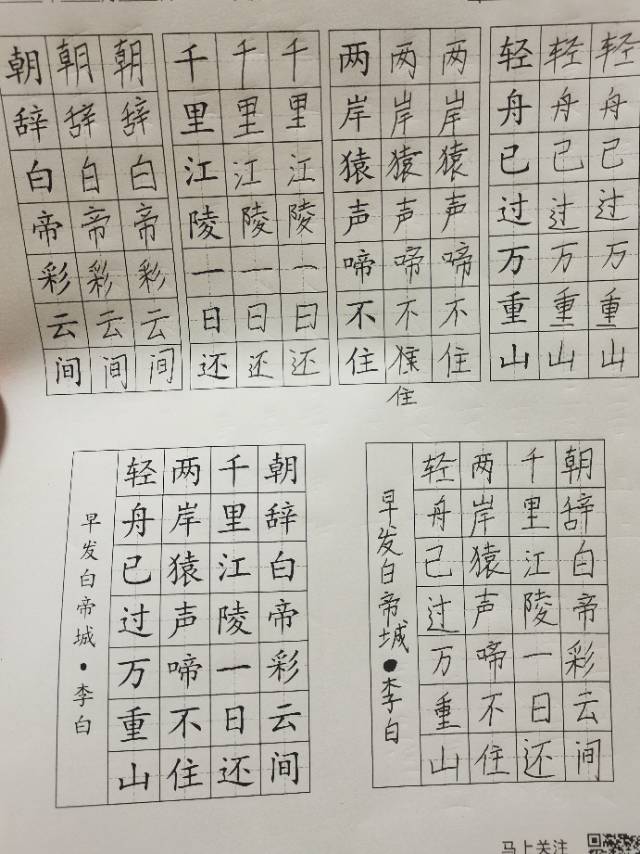 朝辞白帝彩云间
朝辞白帝彩云间
朝辞白帝彩云间
千里江陵一日还
千里江陵一日还
千里江陵一日还
两岸猿声啼不住
两岸猿声啼不住
两岸猿声啼不住
轻舟已过万重山
轻舟已过万重山
轻舟已过万重山
朝辞白帝彩云间
千里江陵一日还
两岸猿声啼不住
轻舟已过万重山
早发白帝城•李白
朝辞白帝彩云间
千里江陵一日还
两岸猿声啼不住
轻舟已过万重山
早发白帝城•李白
马上关注